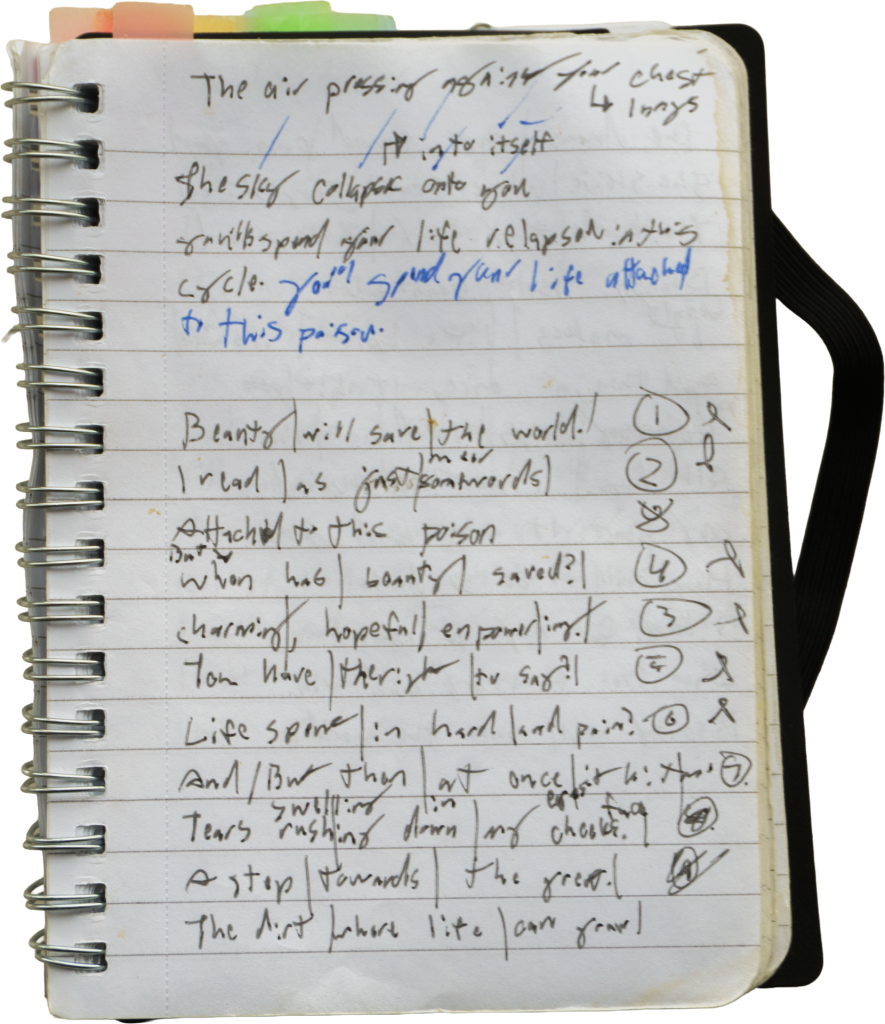 The air pressing against your chest
↳ lungs
↱ into itself
The sky collapse onto you
you'll spend your life relapsed in this
cycle. you'll spend your life attached
to this poison.
Beauty | will save | the world. | 1
I read | as just | mear words | 2
Attached to this poison
But
when has | beauty | saved? | 4
charming, hopeful | empower | ing. | 3
You have | the right | to say? | 5
Life spent | in hard | and pain? 6
And / But then | at once | it hits me. 7
swelling in eyes face
Tears rushing down | my cheeks. | 8
A step | towards | the great. | 9
The dirt | where life | can grow |